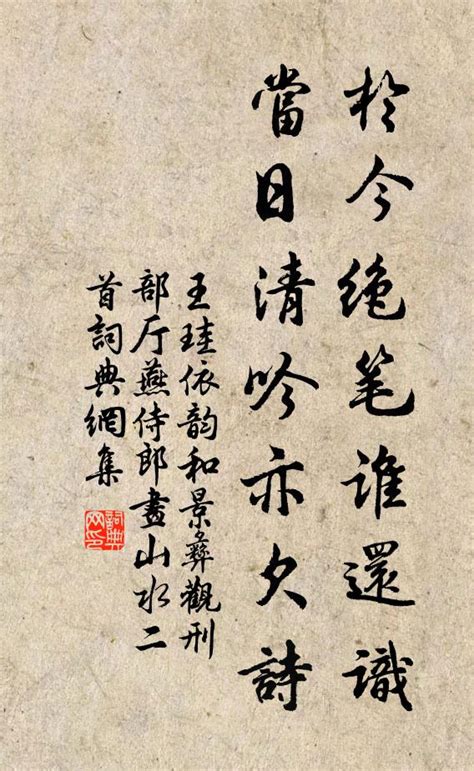 於今绝笔谁還識
當日清吟亦欠詩
王珪依韵和景彝觀刑
部厅燕侍郎畫山水二
首詞典網集
詞典网印